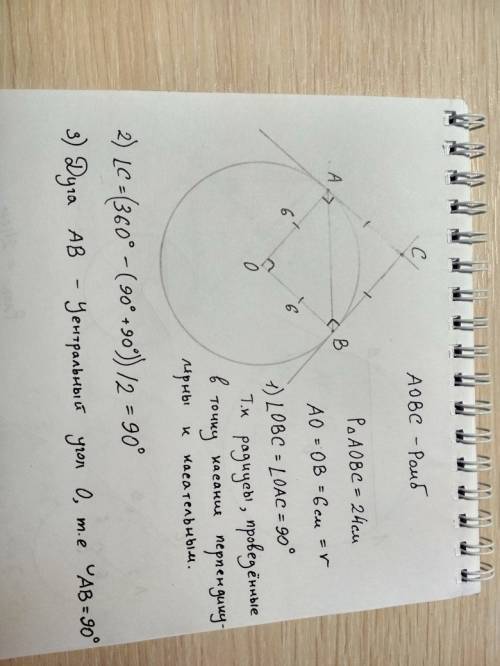 АОВС - Ромб
P△AOBC = 24см
AO = OB = 6см = r
1) ∠OBC = ∠OAC = 90°
Т.к радиусы, проведённые
в точку касания перпендику-
лярны к касательным.
A
C
6
O
6
B
2) ∠C = (360° - (90° + 90°))/2 = 90°
3) Дуга AB - Центральный угол O, т.е ◡AB = 90°